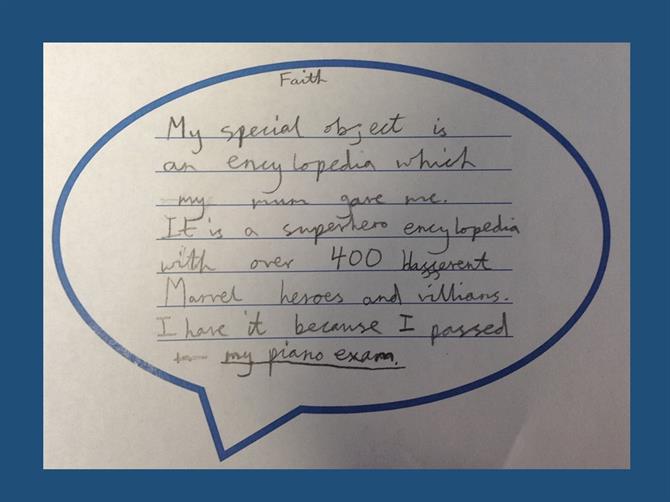 Faith
My special object is
an encylopedia which
my mum gave me.
It is a superhero encylopedia
with over 400
Marvel heroes and villians.
I have it because I passed
my piano exam.